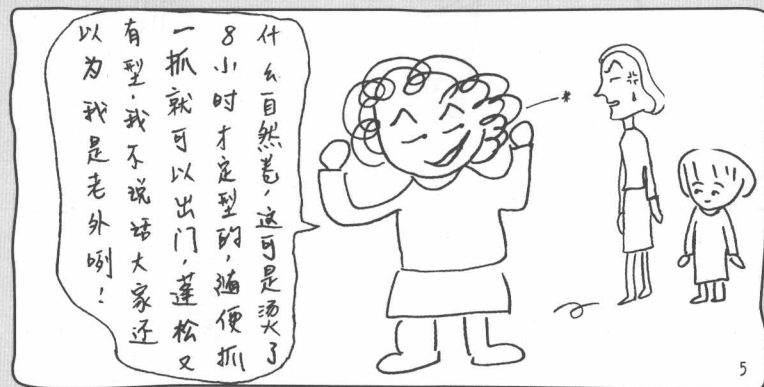 什么自然卷，这可是烫了
8小时才定型的，随便抓
一抓就可以出门，蓬松又
有型，我不说话大家还
以为我是老外咧！
5